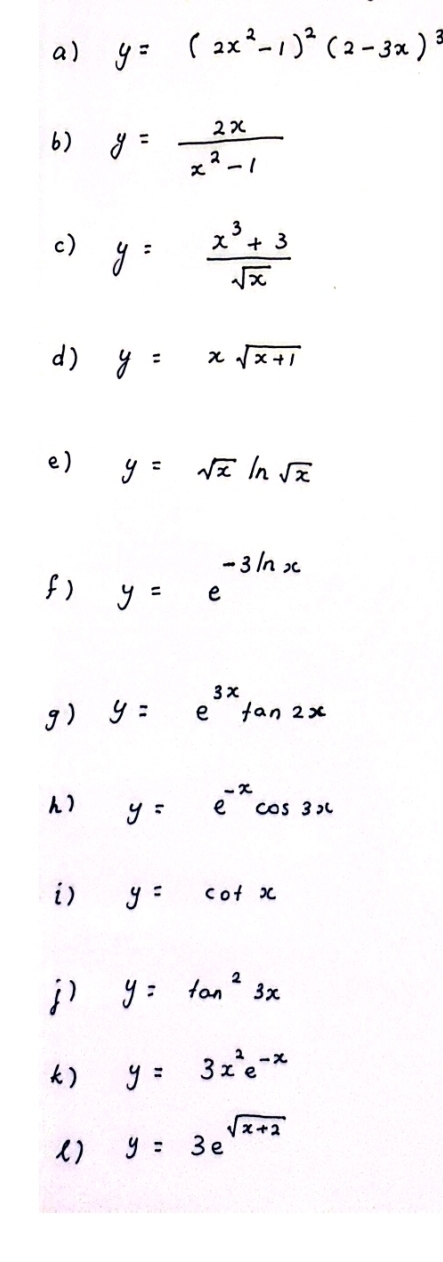 a) y = (2x²-1)² (2-3x)³
b) y = 2x / x²-1
c) y = x³+3 / √x
d) y = x √x+1
e) y = √x ln √x
f) y = e^-3 ln x
g) y = e^3x tan 2x
h) y = e^-x cos 3x
i) y = cot x
j) y = tan² 3x
k) y = 3x²e^-x
l) y = 3e^√x+2